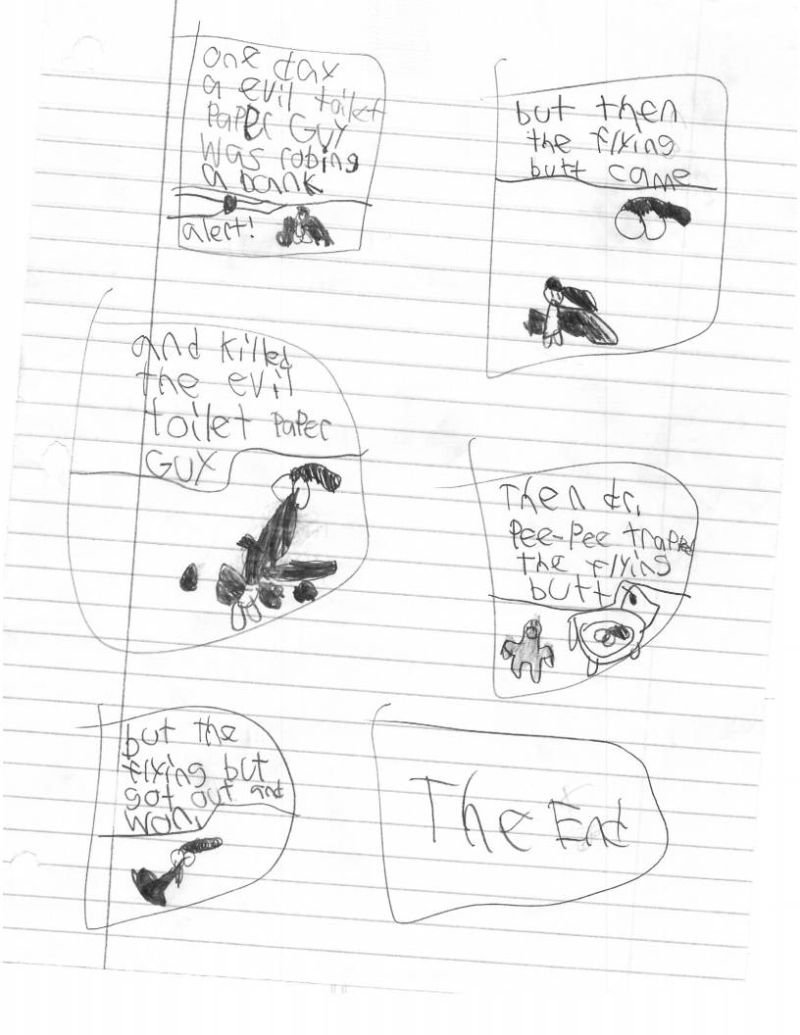 one day
a evil toilet
paper Guy
was robing
a bank
alert!
but then
the flying
butt came
and killed
the evil
toilet paper
GUY
Then dr.
Pee-Pee traped
the flying
butt
but the
flying but
got out and
won.
The End